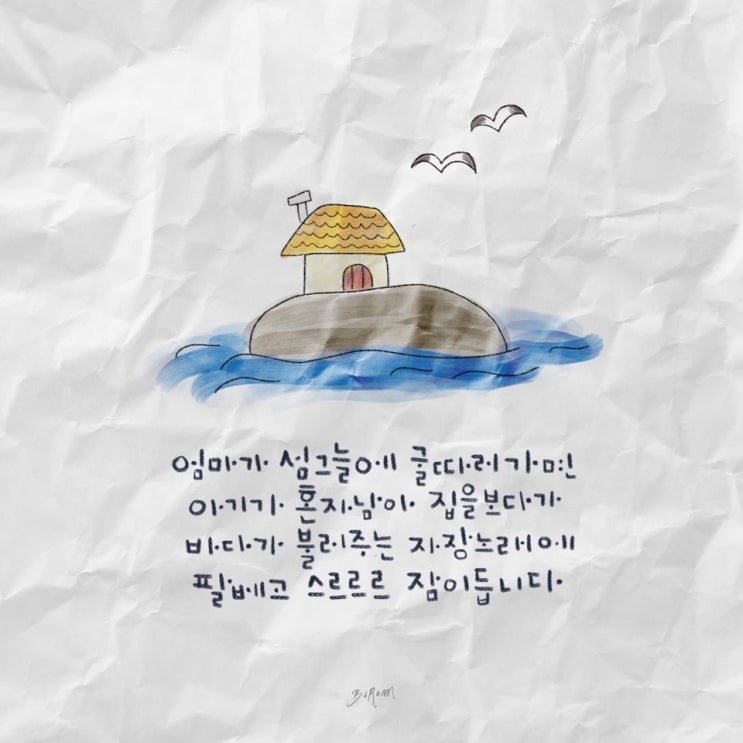 엄마가 섬그늘에 굴따러가면
아기가 혼자남아 집을보다가
바다가 불러주는 자장노래에
팔베고 스르르르 잠이듭니다.
BoRam